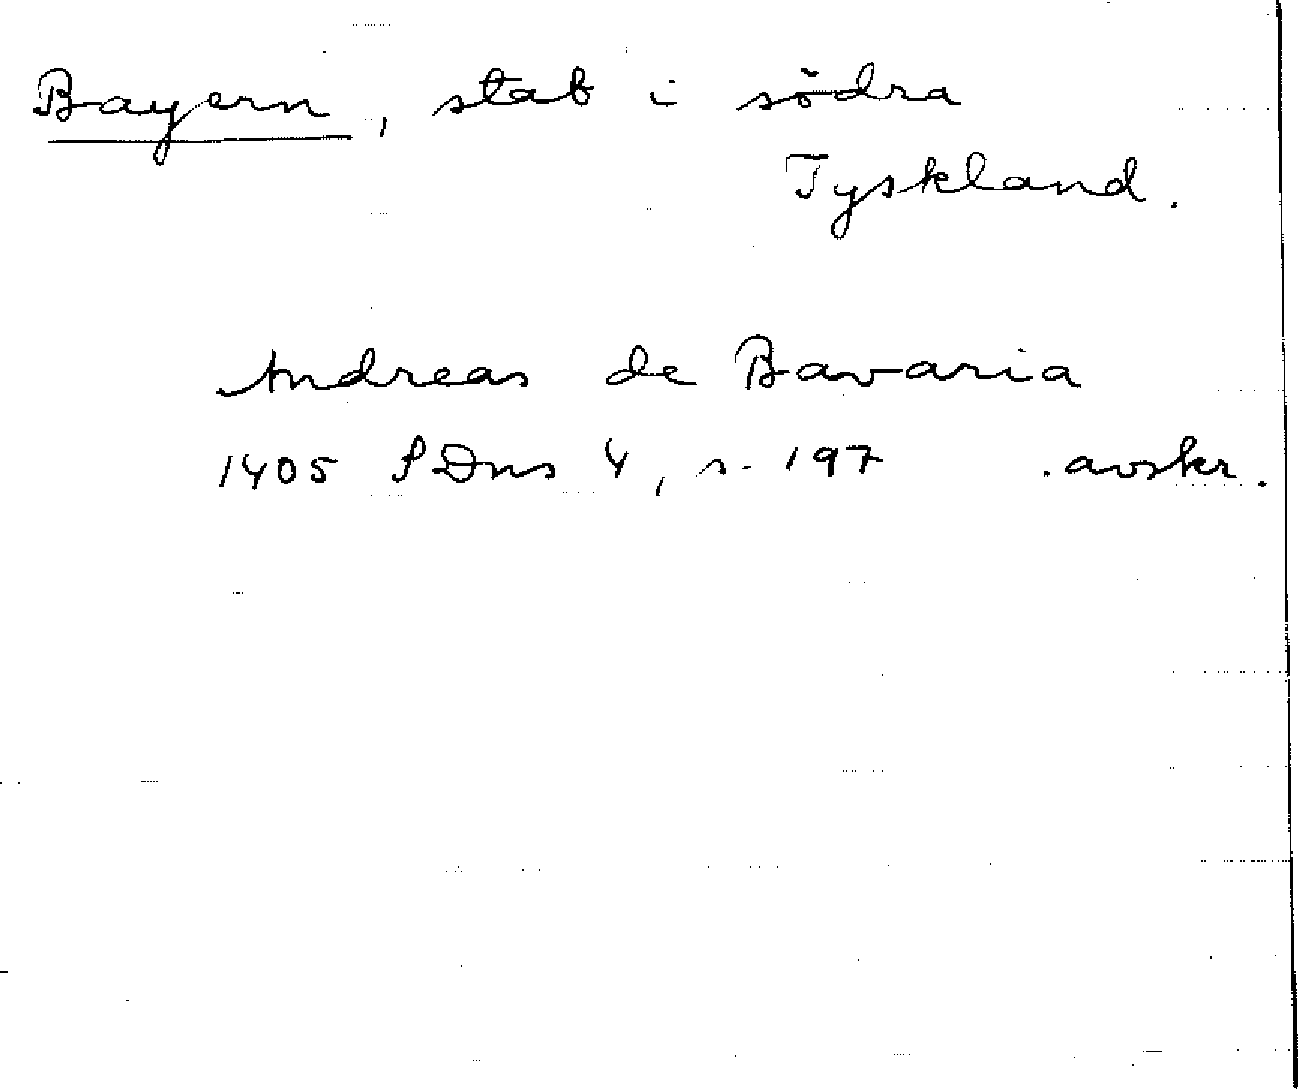 Bayern, stat i södra
Tyskland.
Andreas de Bavaria
1405 SDns 4, s. 197 avskr.